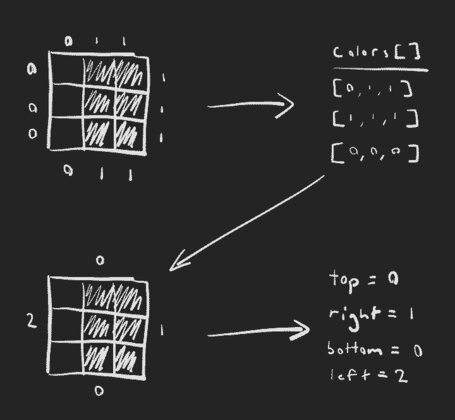 0 1 1
0 1
0 1
0 1
0 1 1
colors[]
[0,1,1]
[1,1,1]
[0,0,0]
0
2 1
0
top = 0
right = 1
bottom = 0
left = 2